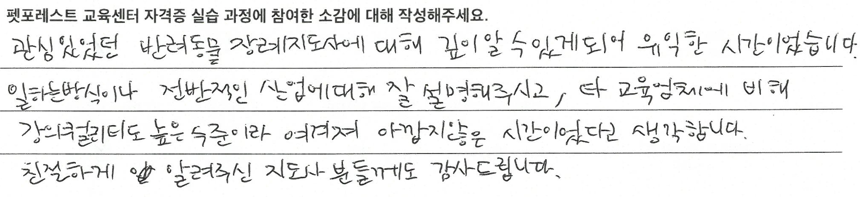 펫포레스트 교육센터 자격증 실습 과정에 참여한 소감에 대해 작성해주세요.
관심있었던 반려동물 장례지도사에 대해 깊이 알 수 있게되어 유익한 시간이었습니다.
일하는방식이나 전반적인 산업에대해 잘 설명해주시고, 타 교육업체에 비해
강의퀄리티도 높은 수준이라 여겨져 아깝지않은 시간이었다고 생각합니다.
친절하게 알려주신 지도사 분들께도 감사드립니다.